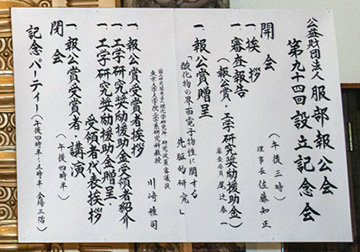 公益財団法人 服部報公会
第九十四回 設立記念会
(午後三時)
開会
一、挨拶 理事長 佐藤知正
一、審査報告
(報公賞・工学研究奨励援助金)
審査委員長 尾辻泰一
一、報公賞贈呈
「酸化物の界面電子物性に関する
先駆的研究」
東京大学大学院工学系研究科教授
川﨑雅司
一、報公賞受賞者挨拶
一、工学研究奨励援助金受領者紹介
一、工学研究奨励援助金贈呈・
受領者代表挨拶
一、報公賞受賞者・講演
(午後四時半)
閉会
記念パーティー(午後四時半~五時半